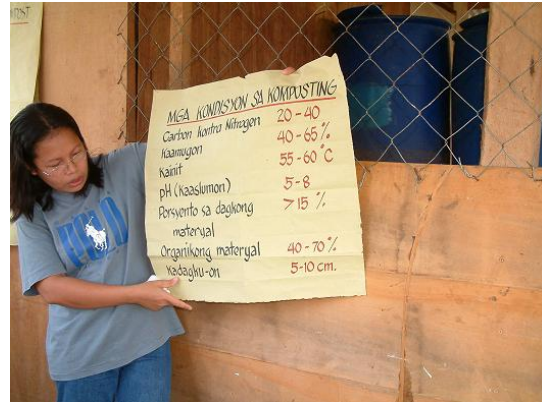 MPOST
MGA KONDISYON SA KOMPOSTING
Carbon kontra Nitrogen 20-40
Kaamugon 40-65%
Kainit 55-60°C
pH (Kaaslumon) 5-8
Porsyento sa dagkong >15%
materyal
Organikong materyal 40-70%
Kadagku-on 5-10 cm.
POLO